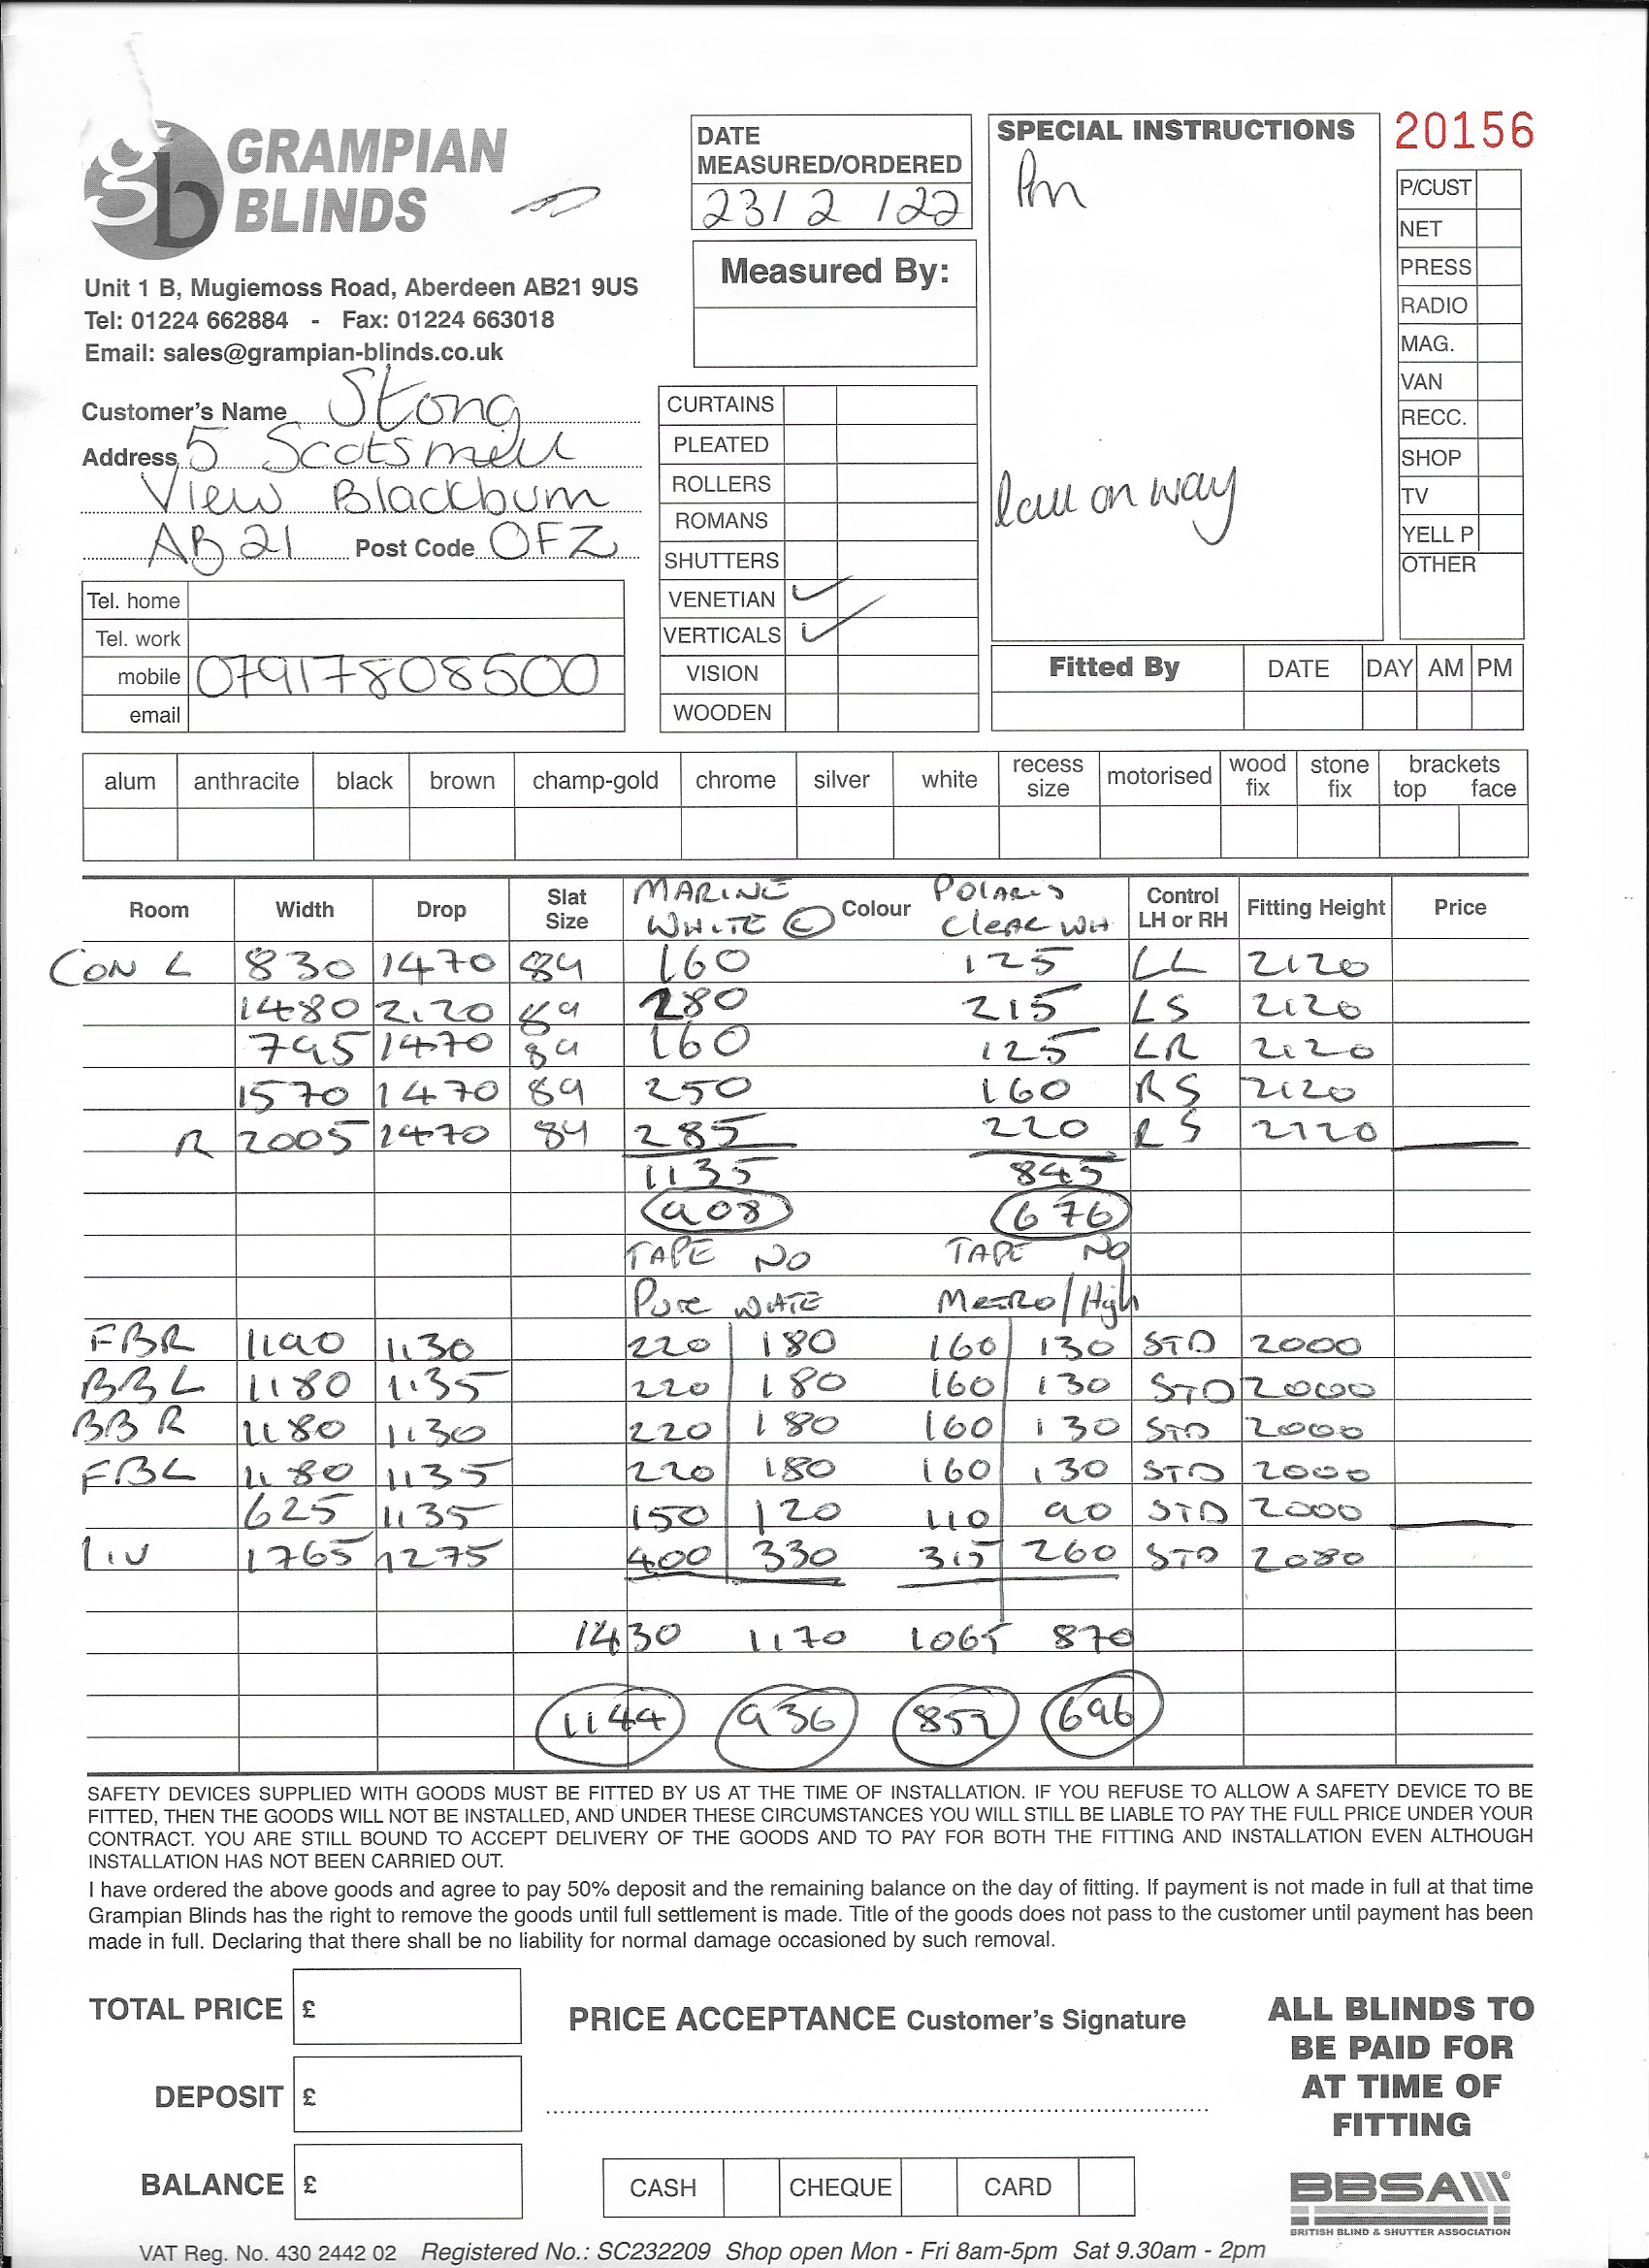 GRAMPIAN
BLINDS
Unit 1 B, Mugiemoss Road, Aberdeen AB21 9US
Tel: 01224 662884 - Fax: 01224 663018
Email: sales@grampian-blinds.co.uk
DATE
MEASURED/ORDERED
23/2/22
Measured By:
SPECIAL INSTRUCTIONS
Pm
Call on way
20156
P/CUST
NET
PRESS
RADIO
MAG.
VAN
RECC.
SHOP
TV
YELL P
OTHER
Customer's Name Stong
Address 5 Scotsmill
View Blackburn
AB21 Post Code 0FZ
Tel. home
Tel. work
mobile 07917808500
email
CURTAINS
PLEATED
ROLLERS
ROMANS
SHUTTERS
VENETIAN ✓
VERTICALS ✓
VISION
WOODEN
Fitted By DATE DAY AM PM
alum anthracite black brown champ-gold chrome silver white recess size motorised wood fix stone fix brackets top face
Room Width Drop Slat Size MARINE WHITE © Colour POLARIS Clear WH Control LH or RH Fitting Height Price
CON L 830 1470 89 160 125 LL 2120
1480 2120 89 280 215 LS 2120
795 1470 89 160 125 LR 2120
1570 1470 89 250 160 RS 2120
R 2005 1470 89 285 220 RS 2120
1135 845
908 676
TAPE NO TAPE NO
Pure WHITE METRO/High
FBR 1190 1130 220 180 160 130 STD 2000
BBL 1180 1135 220 180 160 130 STD 2000
BBR 1180 1130 220 180 160 130 STD 2000
FBL 1180 1135 220 180 160 130 STD 2000
625 1135 150 120 110 90 STD 2000
LIV 1765 1275 400 330 315 260 STD 2080
1430 1170 1065 870
1144 936 852 696
SAFETY DEVICES SUPPLIED WITH GOODS MUST BE FITTED BY US AT THE TIME OF INSTALLATION. IF YOU REFUSE TO ALLOW A SAFETY DEVICE TO BE
FITTED, THEN THE GOODS WILL NOT BE INSTALLED, AND UNDER THESE CIRCUMSTANCES YOU WILL STILL BE LIABLE TO PAY THE FULL PRICE UNDER YOUR
CONTRACT. YOU ARE STILL BOUND TO ACCEPT DELIVERY OF THE GOODS AND TO PAY FOR BOTH THE FITTING AND INSTALLATION EVEN ALTHOUGH
INSTALLATION HAS NOT BEEN CARRIED OUT.
I have ordered the above goods and agree to pay 50% deposit and the remaining balance on the day of fitting. If payment is not made in full at that time
Grampian Blinds has the right to remove the goods until full settlement is made. Title of the goods does not pass to the customer until payment has been
made in full. Declaring that there shall be no liability for normal damage occasioned by such removal.
TOTAL PRICE £
DEPOSIT £
BALANCE £
PRICE ACCEPTANCE Customer's Signature
CASH CHEQUE CARD
ALL BLINDS TO
BE PAID FOR
AT TIME OF
FITTING
BBSA
BRITISH BLIND & SHUTTER ASSOCIATION
VAT Reg. No. 430 2442 02 Registered No.: SC232209 Shop open Mon - Fri 8am-5pm Sat 9.30am - 2pm